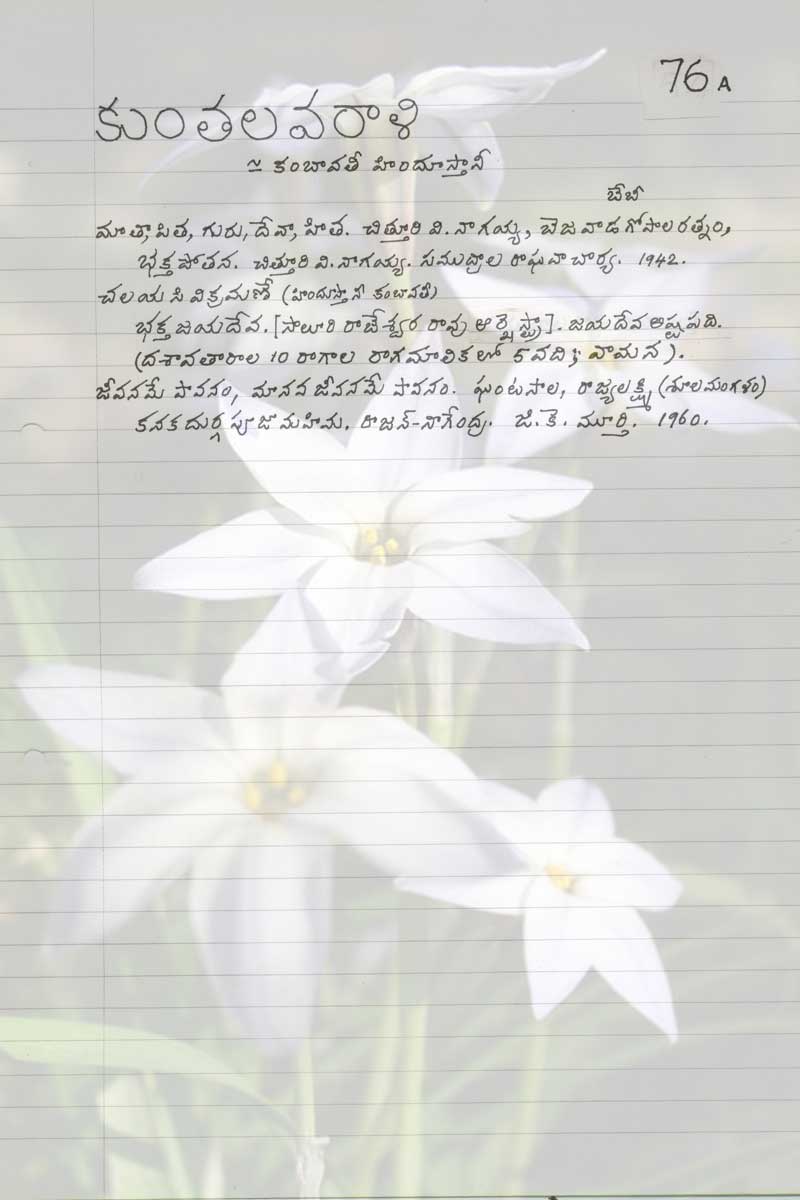 76 A
కుంతలవరాళి
≃ కంబావతీ హిందూస్తానీ
బేబీ
మాతా, పిత, గురు, దేవా, హిత. చిత్తూరి వి. నాగయ్య, బెజవాడ గోపాలరత్నం,
భక్త పోతన. చిత్తూరి వి. నాగయ్య. సముద్రాల రాఘవాచార్య. 1942.
చలయసి విక్రమణే (హిందూస్తానీ కంబావతీ)
భక్త జయదేవ. [సాలూరి రాజేశ్వర రావు ఆర్కెస్ట్రా]. జయదేవ అష్టపది.
(దశావతారాల 10 రాగాల రాగమాలికలో 5వది; వామన).
జీవనమే పావనం, మానవ జీవనమే పావనం. ఘంటసాల, రాజ్యలక్ష్మి (శూలమంగళం)
కనకదుర్గ పూజా మహిమ. రాజన్-నాగేంద్ర. జి. కె. మూర్తి. 1960.